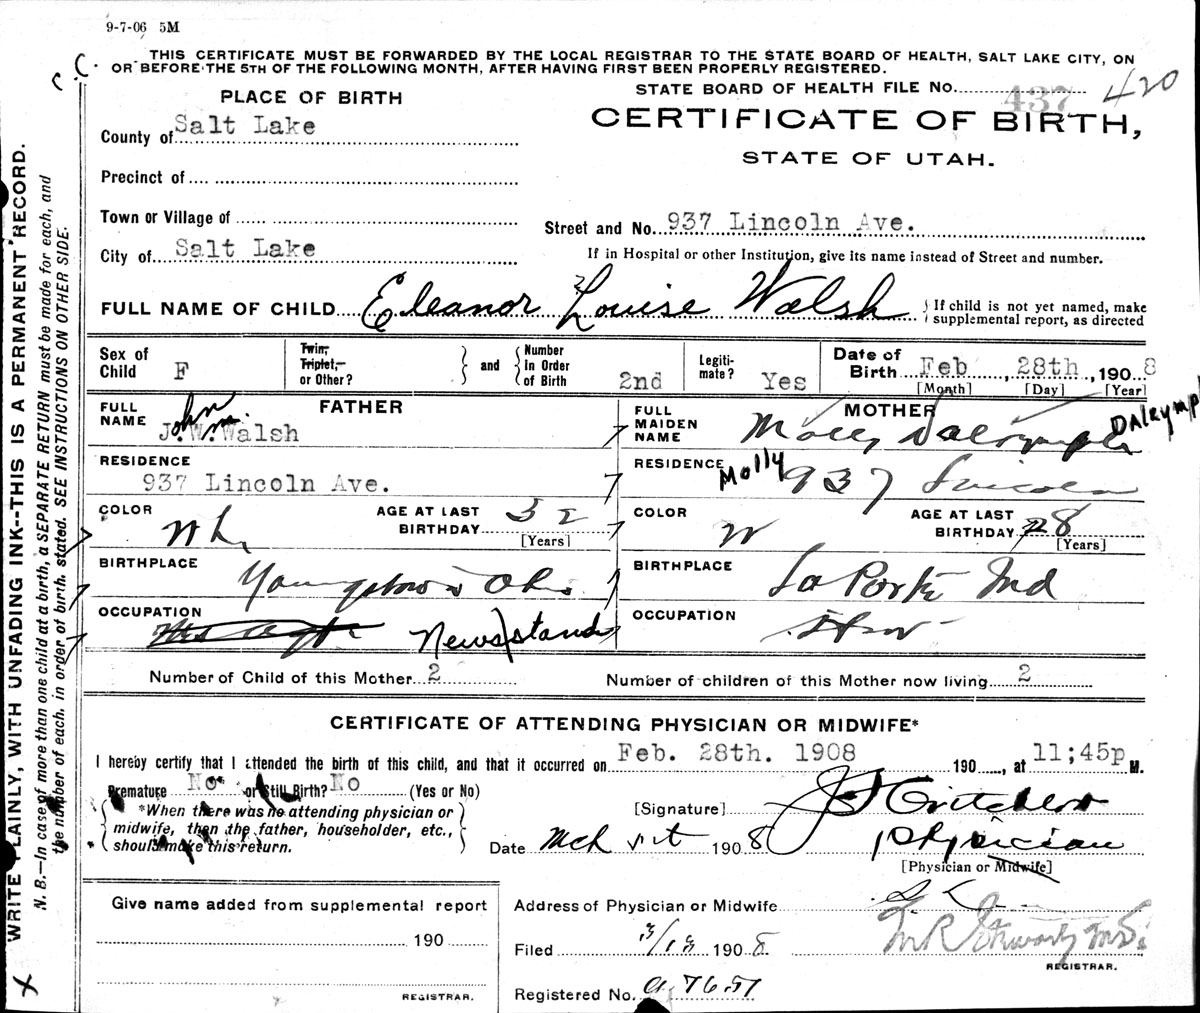 9-7-06 5M
THIS CERTIFICATE MUST BE FORWARDED BY THE LOCAL REGISTRAR TO THE STATE BOARD OF HEALTH, SALT LAKE CITY, ON
OR BEFORE THE 5TH OF THE FOLLOWING MONTH, AFTER HAVING FIRST BEEN PROPERLY REGISTERED.
STATE BOARD OF HEALTH FILE No. 437 420
PLACE OF BIRTH
CERTIFICATE OF BIRTH,
STATE OF UTAH.
County of Salt Lake
Precinct of
Town or Village of
Street and No. 937 Lincoln Ave.
City of Salt Lake
If in Hospital or other Institution, give its name instead of Street and number.
FULL NAME OF CHILD Eleanor Louise Walsh
If child is not yet named, make
supplemental report, as directed
Sex of Child F
Twin, Triplet, or Other?
and
Number In Order of Birth 2nd
Legitimate? Yes
Date of Birth Feb 28th, 1908
[Month] [Day] [Year]
FATHER
FULL NAME John Wm J.W.Walsh
RESIDENCE
937 Lincoln Ave.
COLOR Wh
AGE AT LAST BIRTHDAY 32 [Years]
BIRTHPLACE Youngstown Ohio
OCCUPATION Newsstand
MOTHER
FULL MAIDEN NAME Molly Dalrymple
Dalrymp
RESIDENCE Molly 937 Lincoln
COLOR W
AGE AT LAST BIRTHDAY 28 [Years]
BIRTHPLACE La Porte Ind
OCCUPATION
Number of Child of this Mother 2
Number of children of this Mother now living 2
CERTIFICATE OF ATTENDING PHYSICIAN OR MIDWIFE*
I hereby certify that I attended the birth of this child, and that it occurred on Feb. 28th. 1908 190 , at 11;45p M.
Premature No or Still Birth? No (Yes or No)
*When there was no attending physician or
midwife, then the father, householder, etc.,
should make this return.
[Signature]
Date Mch 1908
Physician
[Physician or Midwife]
Give name added from supplemental report
190
REGISTRAR.
Address of Physician or Midwife
Filed 3/13 1908
REGISTRAR.
Registered No. a 7657
WRITE PLAINLY, WITH UNFADING INK--THIS IS A PERMANENT RECORD.
N. B.—In case of more than one child at a birth, a SEPARATE RETURN must be made for each, and
the number of each, in order of birth, stated. SEE INSTRUCTIONS ON OTHER SIDE.
X